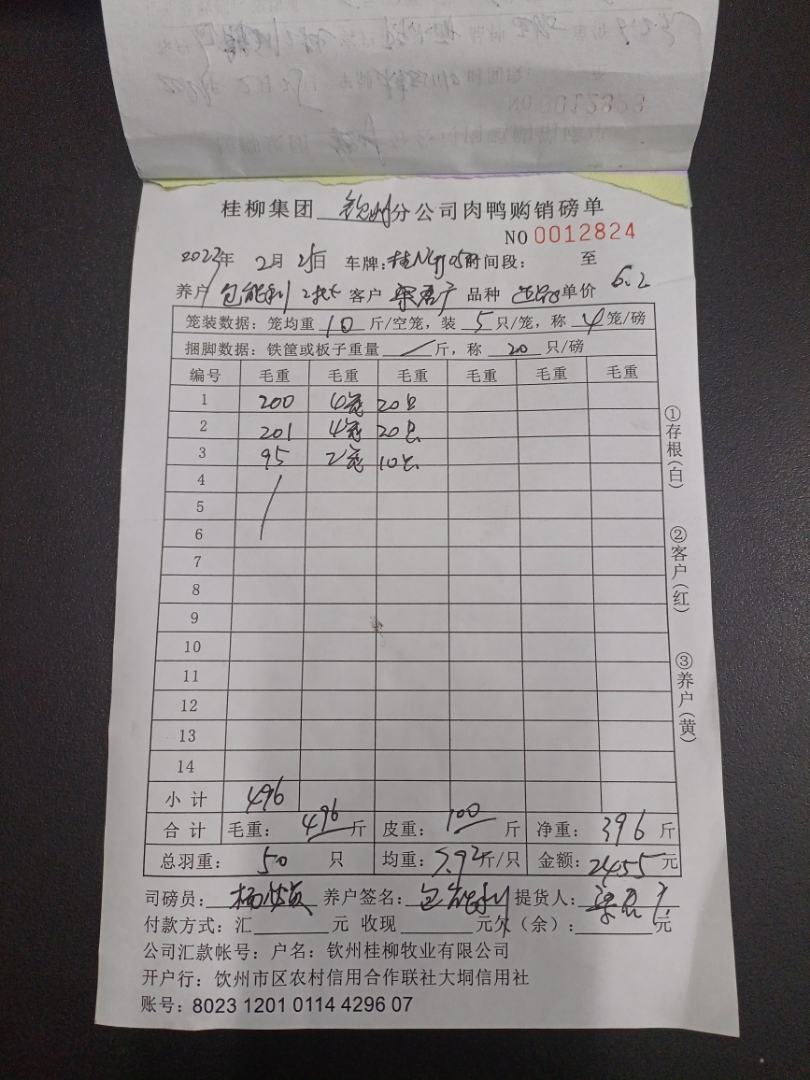 NO 0012823
桂柳集团 钦州 分公司肉鸭购销磅单
NO 0012824
2023年 2月 25日 车牌: 时间段: 至
养户 包能利 客户 梁君广 品种 单价 6.2
笼装数据：笼均重 10 斤/空笼，装 5 只/笼，称 4 笼/磅
捆脚数据：铁筐或板子重量 / 斤，称 20 只/磅
编号 毛重 毛重 毛重 毛重 毛重 毛重
1 200 4笼 20只
2 201 4笼 20只
3 95 2笼 10只
4
5
6
7
8
9
10
11
12
13
14
小计 496
合计 毛重： 496 斤 皮重： 100 斤 净重： 396 斤
总羽重： 50 只 均重： 7.92 斤/只 金额： 2455 元
司磅员： 养户签名： 包能利 提货人： 梁君广
付款方式：汇 元 收现 元欠（余）： 元
公司汇款帐号：户名：钦州桂柳牧业有限公司
开户行：饮州市区农村信用合作联社大垌信用社
账号：8023 1201 0114 4296 07
①存根（白）
②客户（红）
③养户（黄）